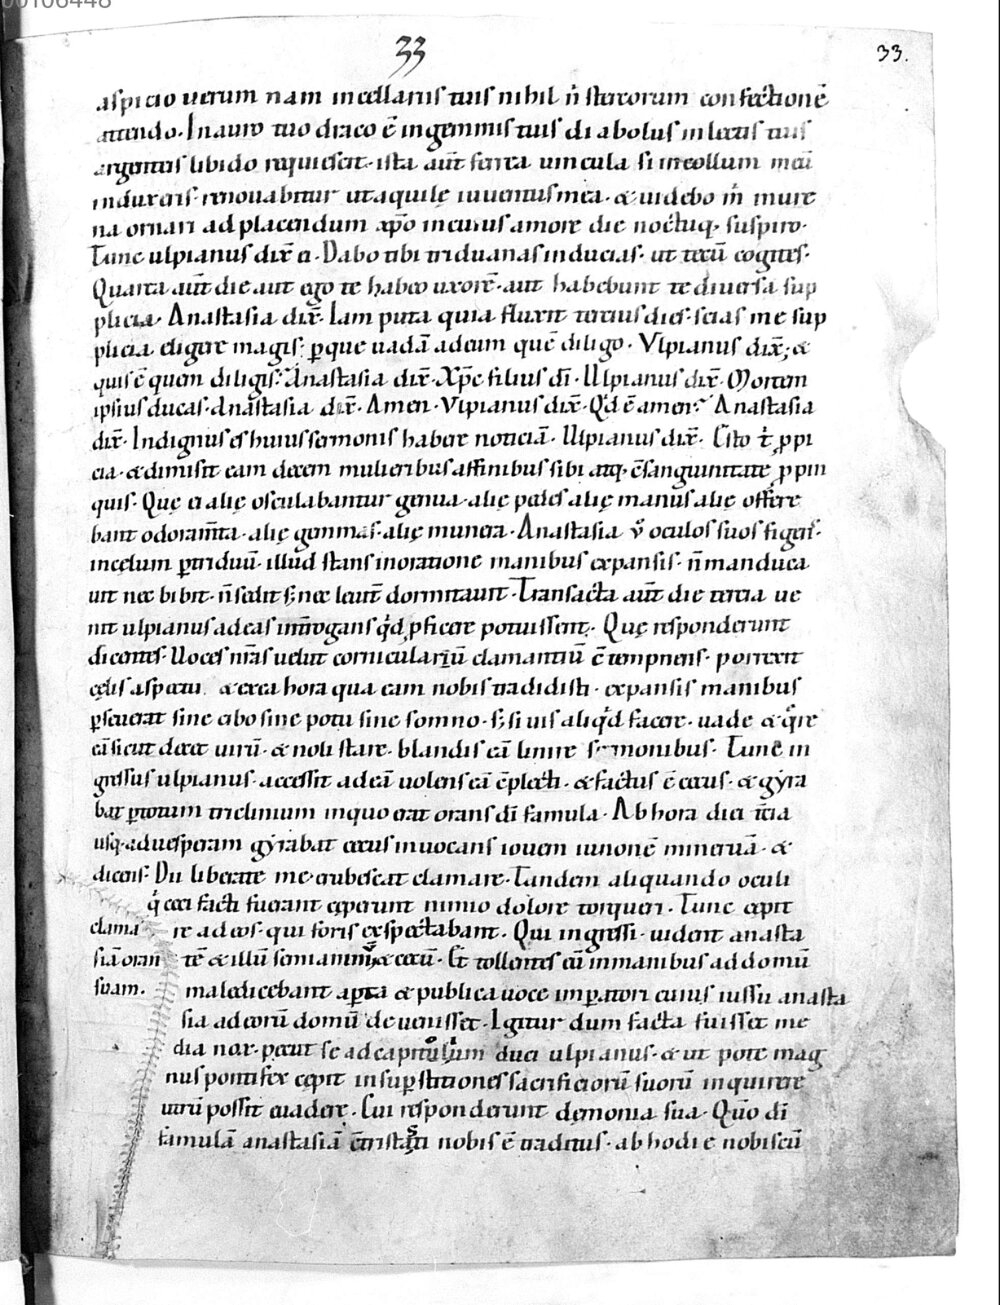 00106448
33
33.
aspicio uerum nam incellariis tuis nihil n̄ stercorum confectionē
attendo· Inauro tuo draco ē ingemmis tuis diabolus inlectis tuis
argenteis libido requiescit· ista aut̄ ferrea uincula si incollum meū
induxeris· renouabitur utaquilę iuuentus mea· & uidebo m̄ mure
na ornari ad placendum xp̄o incuius amore die noctuq· suspiro·
Tunc ulpianus dix̄ ei· Dabo tibi triduanas inducias· ut tecū cogites·
Quarta aut̄ die aut ego te habeo uxorē· aut habebunt te diuersa sup
plicia· Anastasia dix̄· Iam puta quia fluxit tercius dies· scias me sup
plicia eligere magis· ꝑque uadā adeum quē diligo· Vlpianus dix̄; &
quis ē quem diligis· Anastasia dix̄· Xp̄c filius dī· Ulpianus dix̄· Mortem
ipsius ducas· Anastasia dix̄· Amen· Vlpianus dix̄· Qd̄ ē amen· Anastasia
dix̄· Indignus es huius sermonis habere noticiā· Ulpianus dix̄· Esto t̄ ꝓpi
cia· & dimisit eam decem mulieribus affinibus sibi atq· c̄sanguinitate ꝓpin
quis· Quę ei alię osculabantur genua· alię pedes alię manus alię offere
bant odoram̄ta· alię gemmas· alię munera· Anastasia v̊ oculos suos figens·
incęlum ꝑtriduū· illud stans inoratione manibus expansis· n̄ manduca
uit nec bibit· n̄ sedit s; nec leuit̄ dormitauit· Transacta aut̄ die tercia ue
nit ulpianus adeas int̄rogans qd̄ ꝓficere potuissent· Quę responderunt
dicentes· Uoces nr̄as uelut cornicularū clamantiū c̄tempnens· porrexit
cęlis aspectū & exea hora qua eam nobis tradidisti· expansis manibus
ꝑseuerat sine cibo sine potu sine somno· s; si uis aliqd̄ facere· uade & qͥre
eā sicut decet uirū· & noli stare· blandis eā linire sermonibus· Tunc in
gressus ulpianus· accessit adeā uolens eā c̄plecti· & factus ē cecus· & gẏra
bat ꝑtotum triclinium inquo erat orans dī famula· Ab hora diei t̄cia
usq· aduesperam gẏrabat cecus inuocans iouem iunonē mineruā· &
dicens· Dii liberate me· erubescat clamare· Tandem aliquando oculi
qͥ ceci facti fuerant cęperunt nimio dolore torqueri· Tunc cępit
clama re ad eos· qui foris exspectabant. Qui ingressi· uident anasta
siā oran tē & illū semianimē & cecū· Et tollentes eū inmanibus ad domū
suam. maledicebant apta & publica uoce imꝑatori cuius iussu anasta
sia ad eorū domū deuenisset· Igitur dum facta fuisset me
dia nox· pecut se ad capitulum duci ulpianus· & ut pote mag
nus pontifex cępit insuꝑstitiones sacrificiorū suorū inquirere
utrū possit euadere. Cui responderunt dęmonia sua· Quo dī
famulā anastasiā c̄tristasti nobis ē traditus· abhodie nobiscū